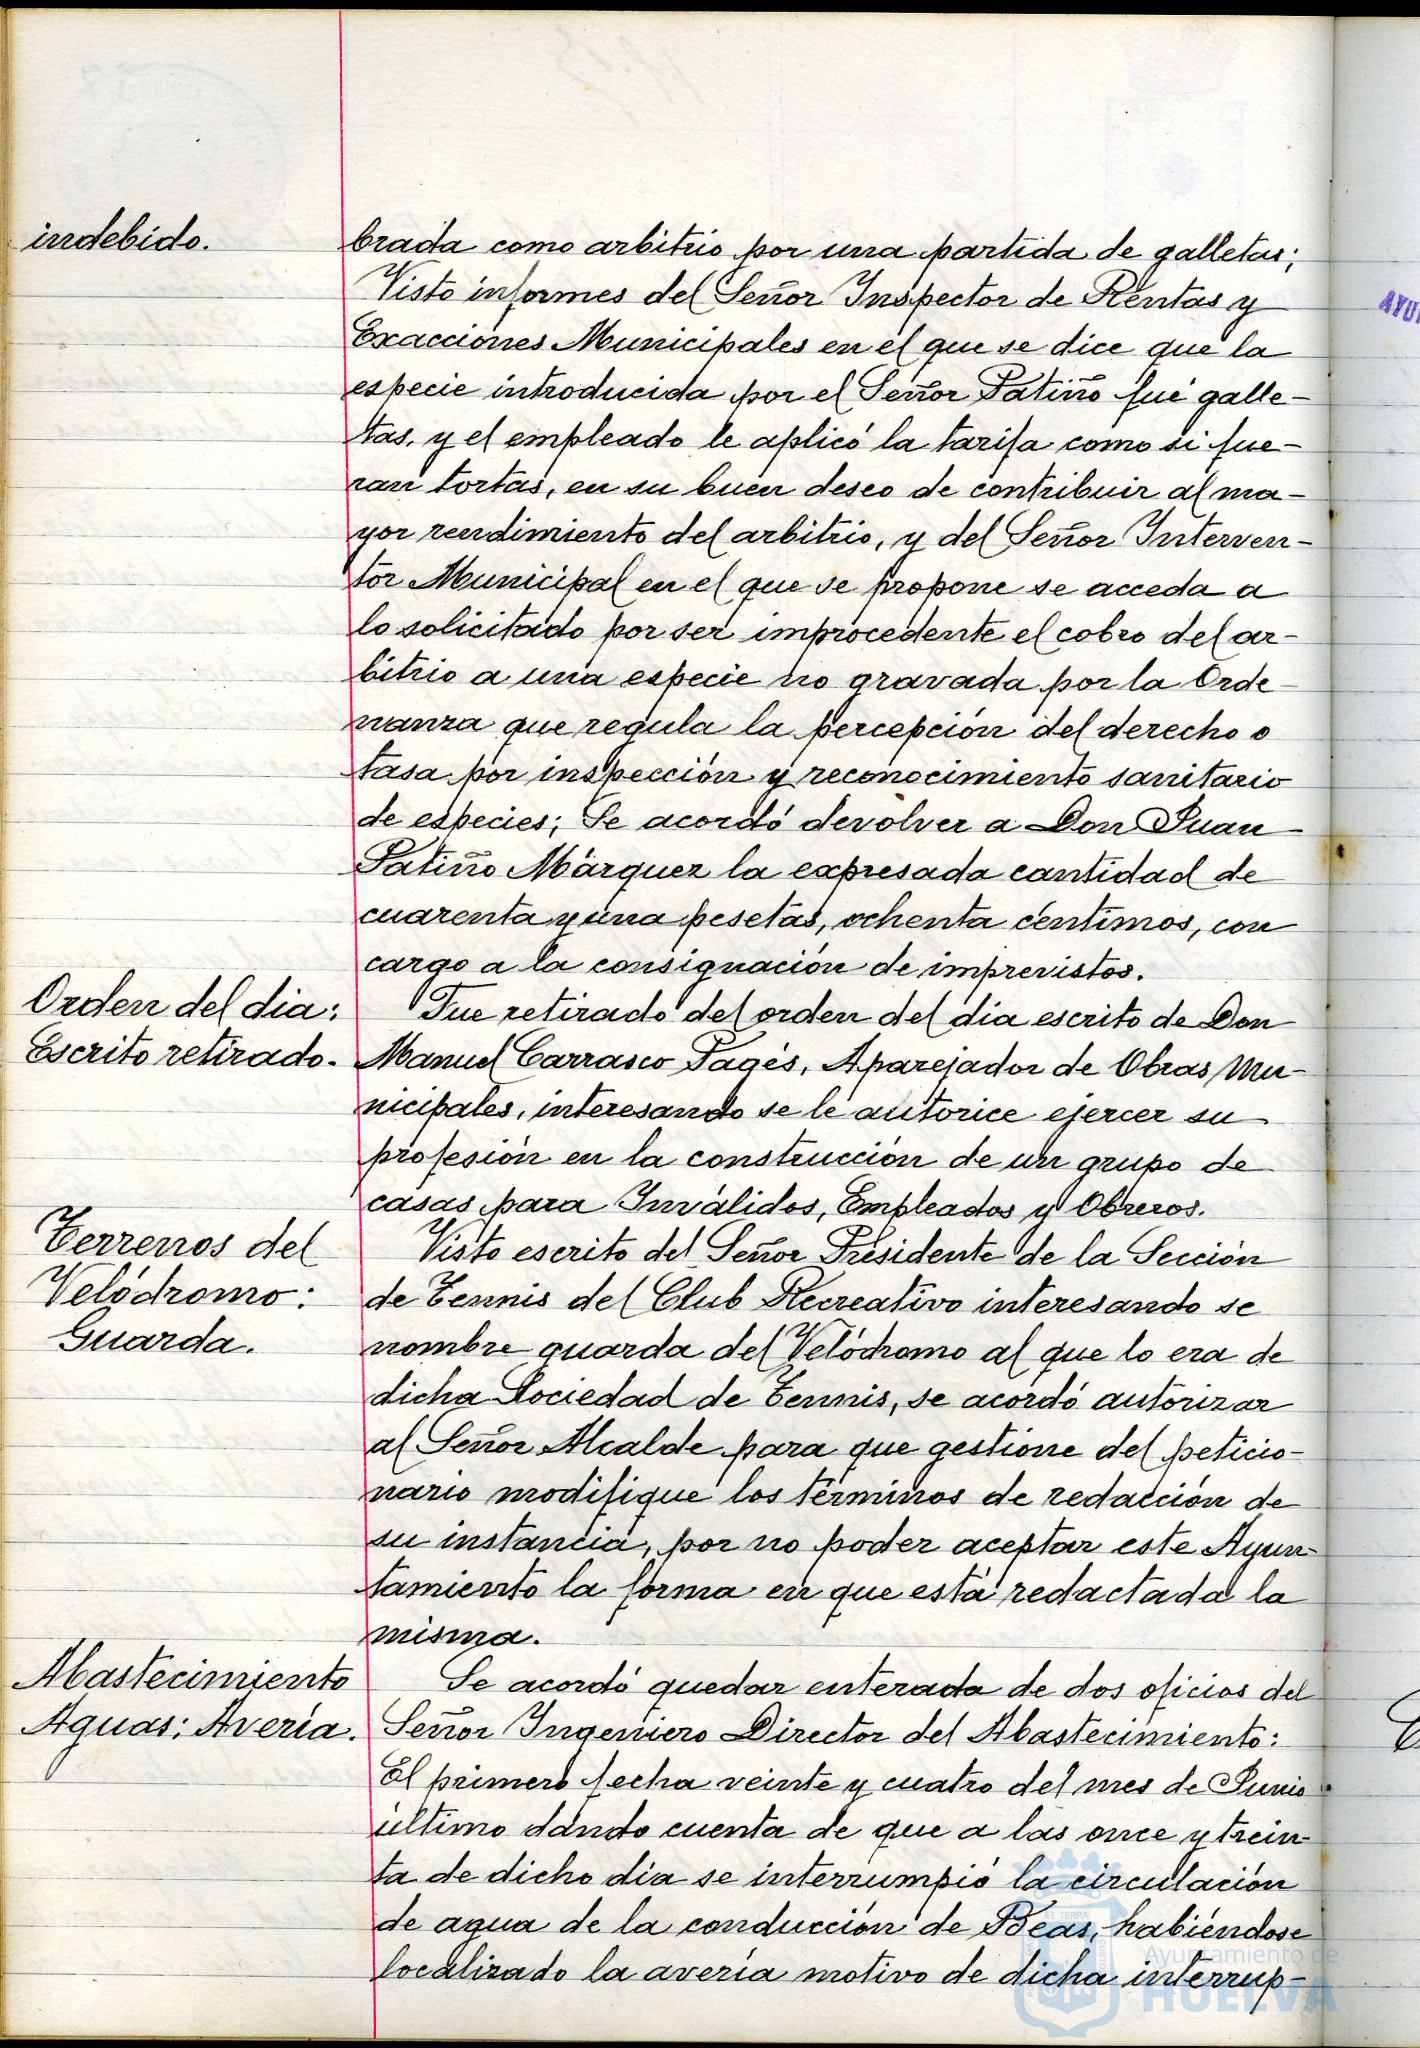 indebido.
brada como arbitrio por una partida de galletas;
Visto informes del Señor Inspector de Rentas y
Exacciones Municipales en el que se dice que la
especie introducida por el Señor Patiño fué galle-
tas, y el empleado le aplicó la tarifa como si fue-
ran tortas, en su buen deseo de contribuir al ma-
yor rendimiento del arbitrio, y del Señor Interven-
tor Municipal en el que se propone se acceda a
lo solicitado por ser improcedente el cobro del ar-
bitrio a una especie no gravada por la Orde
nanza que regula la percepción del derecho o
tasa por inspección y reconocimiento sanitario
de especies; Se acordó devolver a Don Juan
Patiño Márquez la expresada cantidad de
cuarenta y una pesetas, ochenta céntimos, con
cargo a la consignación de imprevistos.
Orden del dia:
Escrito retirado.
Fue retirado del orden del dia escrito de Don
Manuel Carrasco Pagés, Aparejador de Obras Mu-
nicipales, interesando se le autorice ejercer su
profesión en la construcción de un grupo de
casas para Inválidos, Empleados y Obreros.
Terrenos del
Velódromo:
Guarda.
Visto escrito del Señor Presidente de la Sección
de Tennis del Club Recreativo interesando se
nombre guarda del Velódromo al que lo era de
dicha Sociedad de Tennis, se acordó autorizar
al Señor Alcalde para que gestione del peticio-
nario modifique los términos de redacción de
su instancia, por no poder aceptar este Ayun-
tamiento la forma en que está redactada la
misma.
Abastecimiento
Aguas: Avería.
Se acordó quedar enterada de dos oficios del
Señor Ingeniero Director del Abastecimiento:
El primero fecha veinte y cuatro del mes de Junio
último dando cuenta de que a las once y trein-
ta de dicho dia se interrumpió la circulación
de agua de la conducción de Beas, habiéndose
localizado la avería motivo de dicha interrup-
Ayuntamiento de
HUELVA
AYU